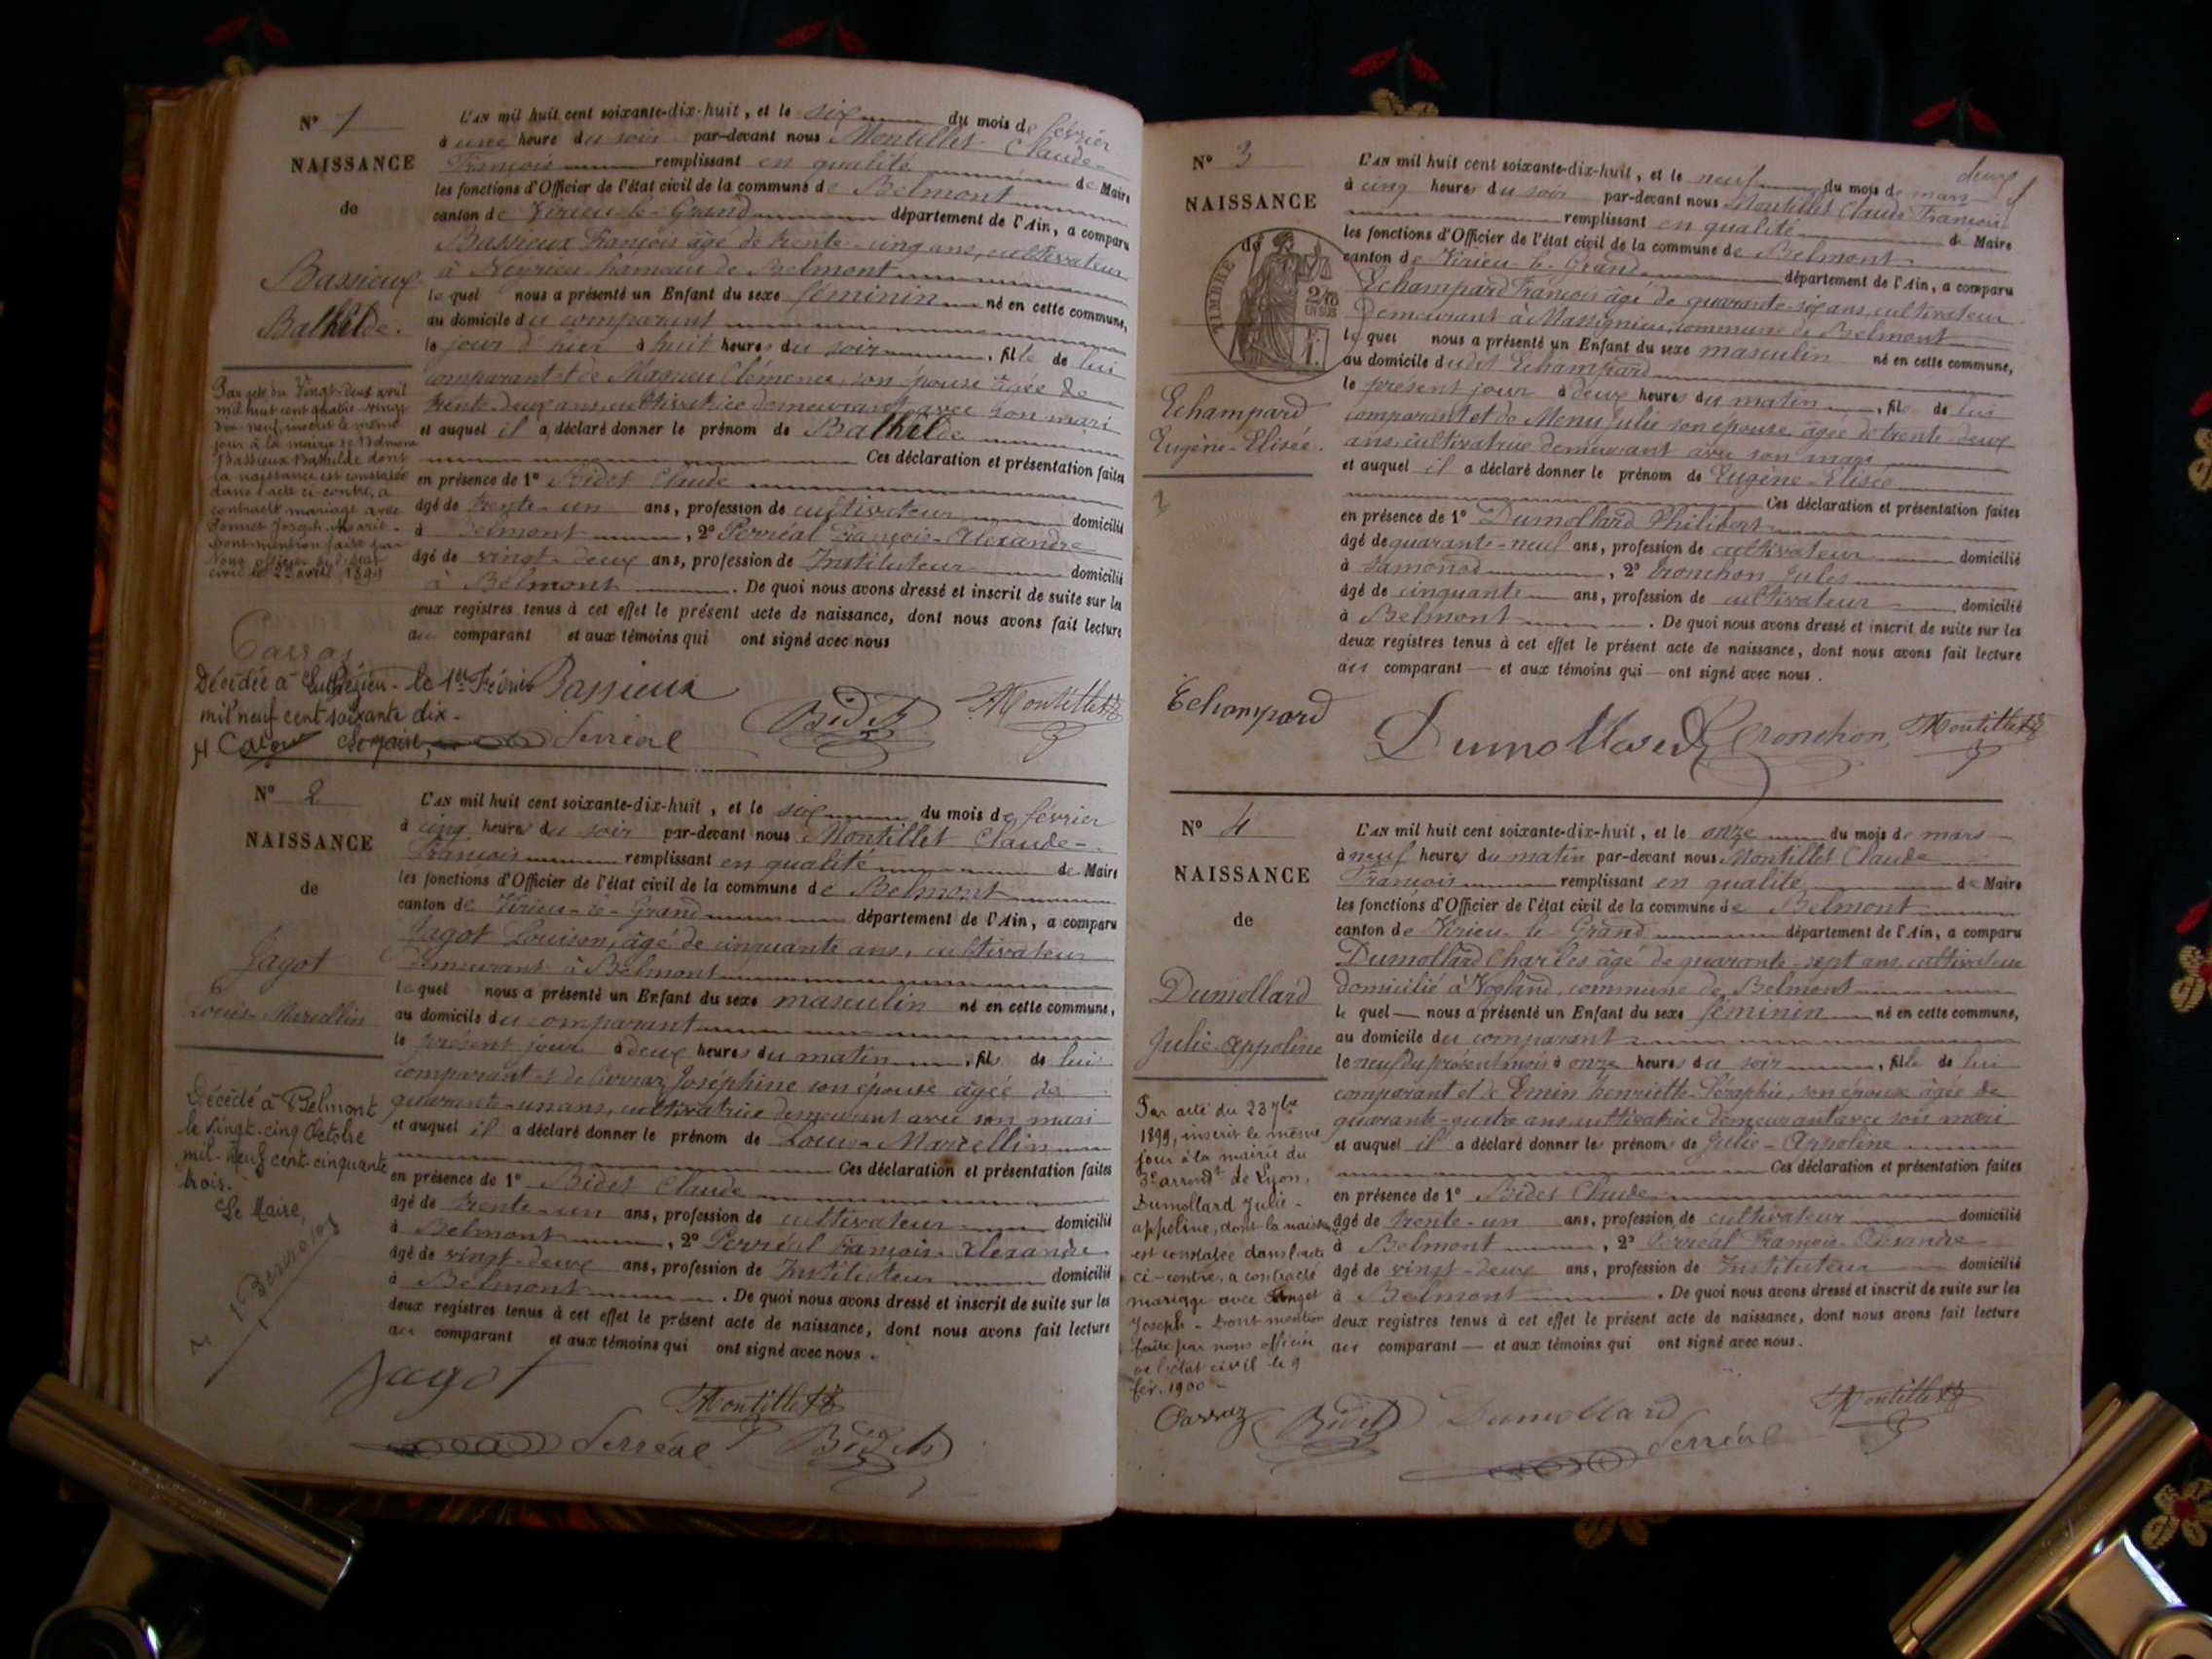 N° 1
NAISSANCE
de
Bassieux
Bathilde.
L'AN mil huit cent soixante-dix-huit, et le six du mois de février
à une heure du soir par-devant nous Montillet Claude-
François remplissant en qualité de Maire
les fonctions d'Officier de l'état civil de la commune de Belmont
canton de Virieu-le-Grand département de l'Ain, a comparu
Bassieux François âgé de trente-cinq ans, cultivateur
à Neyrieu hameau de Belmont
lequel nous a présenté un Enfant du sexe féminin né en cette commune,
au domicile du comparant
le jour d'hier à huit heures du soir, fille de lui
comparant et de Clémence, son épouse âgée de
trente-deux ans cultivatrice demeurant avec son mari
et auquel il a déclaré donner le prénom de Bathilde
Ces déclaration et présentation faites
en présence de 1° Bidet Claude
âgé de trente-un ans, profession de cultivateur domicilié
à Belmont, 2° Perréal François-Alexandre
âgé de vingt-deux ans, profession de Instituteur domicilié
à Belmont. De quoi nous avons dressé et inscrit de suite sur les
deux registres tenus à cet effet le présent acte de naissance, dont nous avons fait lecture
au comparant et aux témoins qui ont signé avec nous
Par acte du Vingt-deux avril
mil huit cent quatre-vingt
dix neuf inscrit le même
jour à la mairie de Belmont
Bassieux Bathilde dont
la naissance est constatée
dans l'acte ci-contre, a
contracté mariage avec
Joseph-Marie-
Dont mention faite par
nous officier de l'état
civil le 22 avril 1899
Carraz
Décédée à le 1er Février
mil neuf cent soixante dix.
Le maire,
Bassieux
Bidet
Montillet
Perréal
N° 2
NAISSANCE
de
Jagot
Louis-Marcellin
L'AN mil huit cent soixante-dix-huit, et le six du mois de février
à cinq heures du soir par-devant nous Montillet Claude-
François remplissant en qualité de Maire
les fonctions d'Officier de l'état civil de la commune de Belmont
canton de Virieu-le-Grand département de l'Ain, a comparu
Jagot Louison, âgé de cinquante ans, cultivateur
demeurant à Belmont
lequel nous a présenté un Enfant du sexe masculin né en cette commune,
au domicile du comparant
le présent jour à deux heures du matin, fils de lui
comparant et de Carraz Joséphine son épouse âgée de
quarante-un ans, cultivatrice demeurant avec son mari
et auquel il a déclaré donner le prénom de Louis-Marcellin
Ces déclaration et présentation faites
en présence de 1° Bidet Claude
âgé de trente-un ans, profession de cultivateur domicilié
à Belmont, 2° Perréal François-Alexandre
âgé de vingt-deux ans, profession de Instituteur domicilié
à Belmont. De quoi nous avons dressé et inscrit de suite sur les
deux registres tenus à cet effet le présent acte de naissance, dont nous avons fait lecture
au comparant et aux témoins qui ont signé avec nous.
Décédé à Belmont
le vingt-cinq Octobre
mil-neuf cent-cinquante
trois.
Le Maire,
Jagot
Montillet
Perréal
Bidet
deux
N° 3
NAISSANCE
de
TIMBRE
2/10
EN SUS
Echampard
Eugène-Elisée.
L'AN mil huit cent soixante-dix-huit, et le neuf du mois de mars
à cinq heures du soir par-devant nous Montillet Claude François
remplissant en qualité de Maire
les fonctions d'Officier de l'état civil de la commune de Belmont
canton de Virieu-le-Grand département de l'Ain, a comparu
Echampard François âgé de quarante-six ans, cultivateur
demeurant à Massignieu, commune de Belmont
lequel nous a présenté un Enfant du sexe masculin né en cette commune,
au domicile dudit Echampard
le présent jour à deux heures du matin, fils de lui
comparant et de Menu Julie son épouse, âgée de trente-deux
ans, cultivatrice demeurant avec son mari
et auquel il a déclaré donner le prénom de Eugène-Elisée
Ces déclaration et présentation faites
en présence de 1° Dumollard Philibert
âgé de quarante-neuf ans, profession de cultivateur domicilié
à Samonod, 2° Cronchon Jules
âgé de cinquante ans, profession de cultivateur domicilié
à Belmont. De quoi nous avons dressé et inscrit de suite sur les
deux registres tenus à cet effet le présent acte de naissance, dont nous avons fait lecture
au comparant — et aux témoins qui — ont signé avec nous.
Echampard
Dumollard
Cronchon
Montillet
N° 4
NAISSANCE
de
Dumollard
Julie-Appoline
L'AN mil huit cent soixante-dix-huit, et le onze du mois de mars
à neuf heures du matin par-devant nous Montillet Claude
François remplissant en qualité de Maire
les fonctions d'Officier de l'état civil de la commune de Belmont
canton de Virieu-le-Grand département de l'Ain, a comparu
Dumollard Charles âgé de quarante-sept ans, cultivateur
domicilié à Vogland, commune de Belmont
lequel — nous a présenté un Enfant du sexe féminin né en cette commune,
au domicile du comparant
le neuf du présent mois à onze heures du soir, fille de lui
comparant et de Emin henriette-Séraphie, son épouse âgée de
quarante-quatre ans cultivatrice demeurant avec son mari
et auquel il a déclaré donner les prénoms de Julie-Appoline
Ces déclaration et présentation faites
en présence de 1° Bidet Claude
âgé de trente-un ans, profession de cultivateur domicilié
à Belmont, 2° Perréal François-Alexandre
âgé de vingt-deux ans, profession de Instituteur domicilié
à Belmont. De quoi nous avons dressé et inscrit de suite sur les
deux registres tenus à cet effet le présent acte de naissance, dont nous avons fait lecture
au comparant — et aux témoins qui ont signé avec nous.
Par acte du 23 7bre
1899, inscrit le même
jour à la mairie du
3e arrondt de Lyon,
Dumollard Julie-
appoline, dont la naissance
est constatée dans l'acte
ci-contre, a contracté
mariage avec
Joseph - Dont mention
faite par nous officier
de l'état civil le 9
fév. 1900 -
Carraz
Bidet
Dumollard
Perréal
Montillet